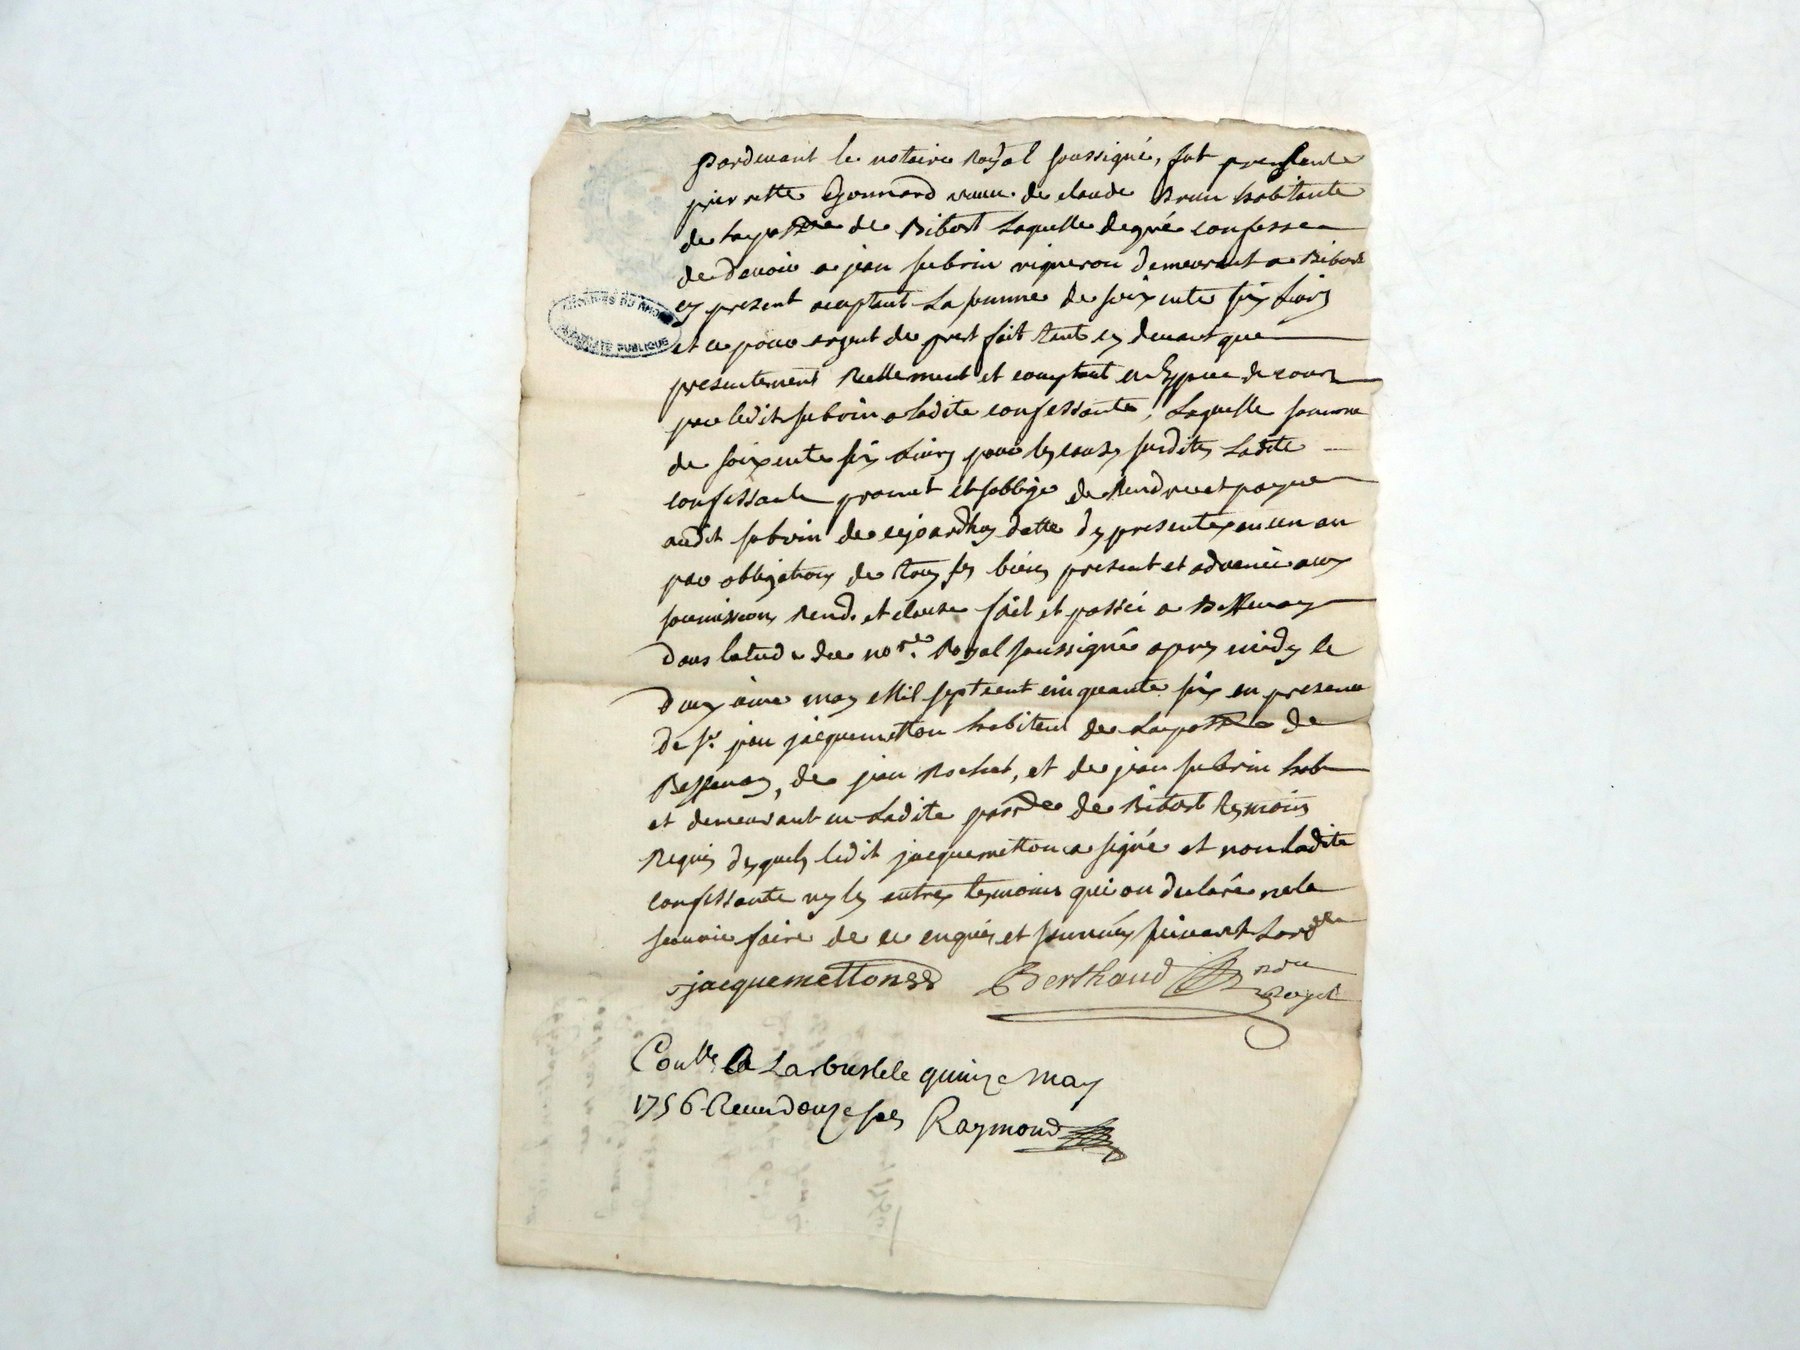 pardevant le notaire Royal soussigné, fut presente
pierrette Gonnard veuve de claude Brun habitante
de la parsse de Bibost Laquelle de gré confesse
de devoir a jean subrin vigneron demeurant a Bibost
cy present aceptant La somme de soixente six Livres
et ce pour argent de prest fait tant cy devant que
presentement Reellement et comptant en Espece de cours
par ledit subrin a ladite confessante, Laquelle somme
de soixente six Livres pour les causes susdites Ladite
confessante promet et soblige de Rendre et payer
audit subrin de cejourdhuy datte des presentes en un an
par obligations de tous ses biens present et advenir aux
soumissions Rend. et clause fait et passé a Bessenay
dans letude du nore. Royal soussigné apres midy le
deuxième may Mil sept cent cinquante six en presence
de sr. jean jacquemetton habitent de La parsse de
Bessenay, de jean Rochat, et de jean subrin hab
et demeurant en Ladite parsse de Bibost temoins
Requis desquels ledit jacquemetton a signé et non Ladite
confessante ny les autres temoins qui on declaré ne le
scavoir faire de ce enquis et sommés suivant Lordce
jacquemetton Berthaud nore
Royal
Contlle A Larbresle le quinze May
1756 Recu douze sols Raymond
ARCHIVES DU RHONE
PROPRIETE PUBLIQUE